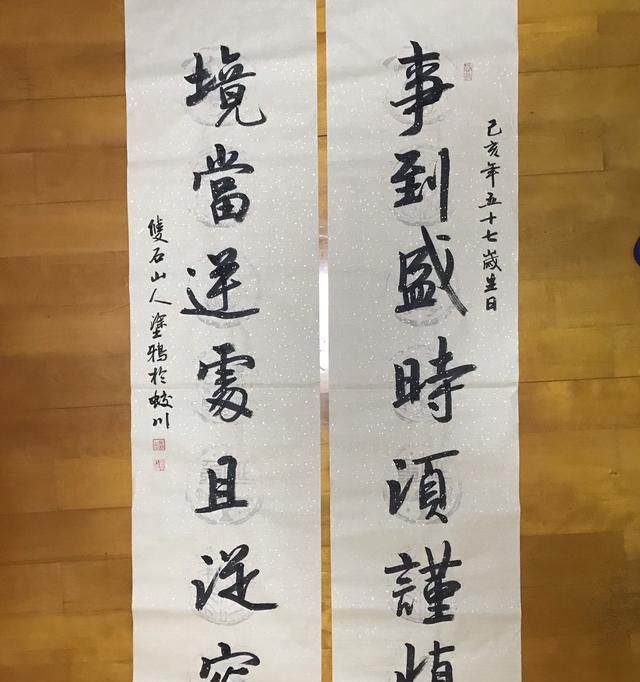 己亥年五十七歲生日
事到盛時須謹慎
境當逆處且從容
雙石山人塗鴉於蛟川